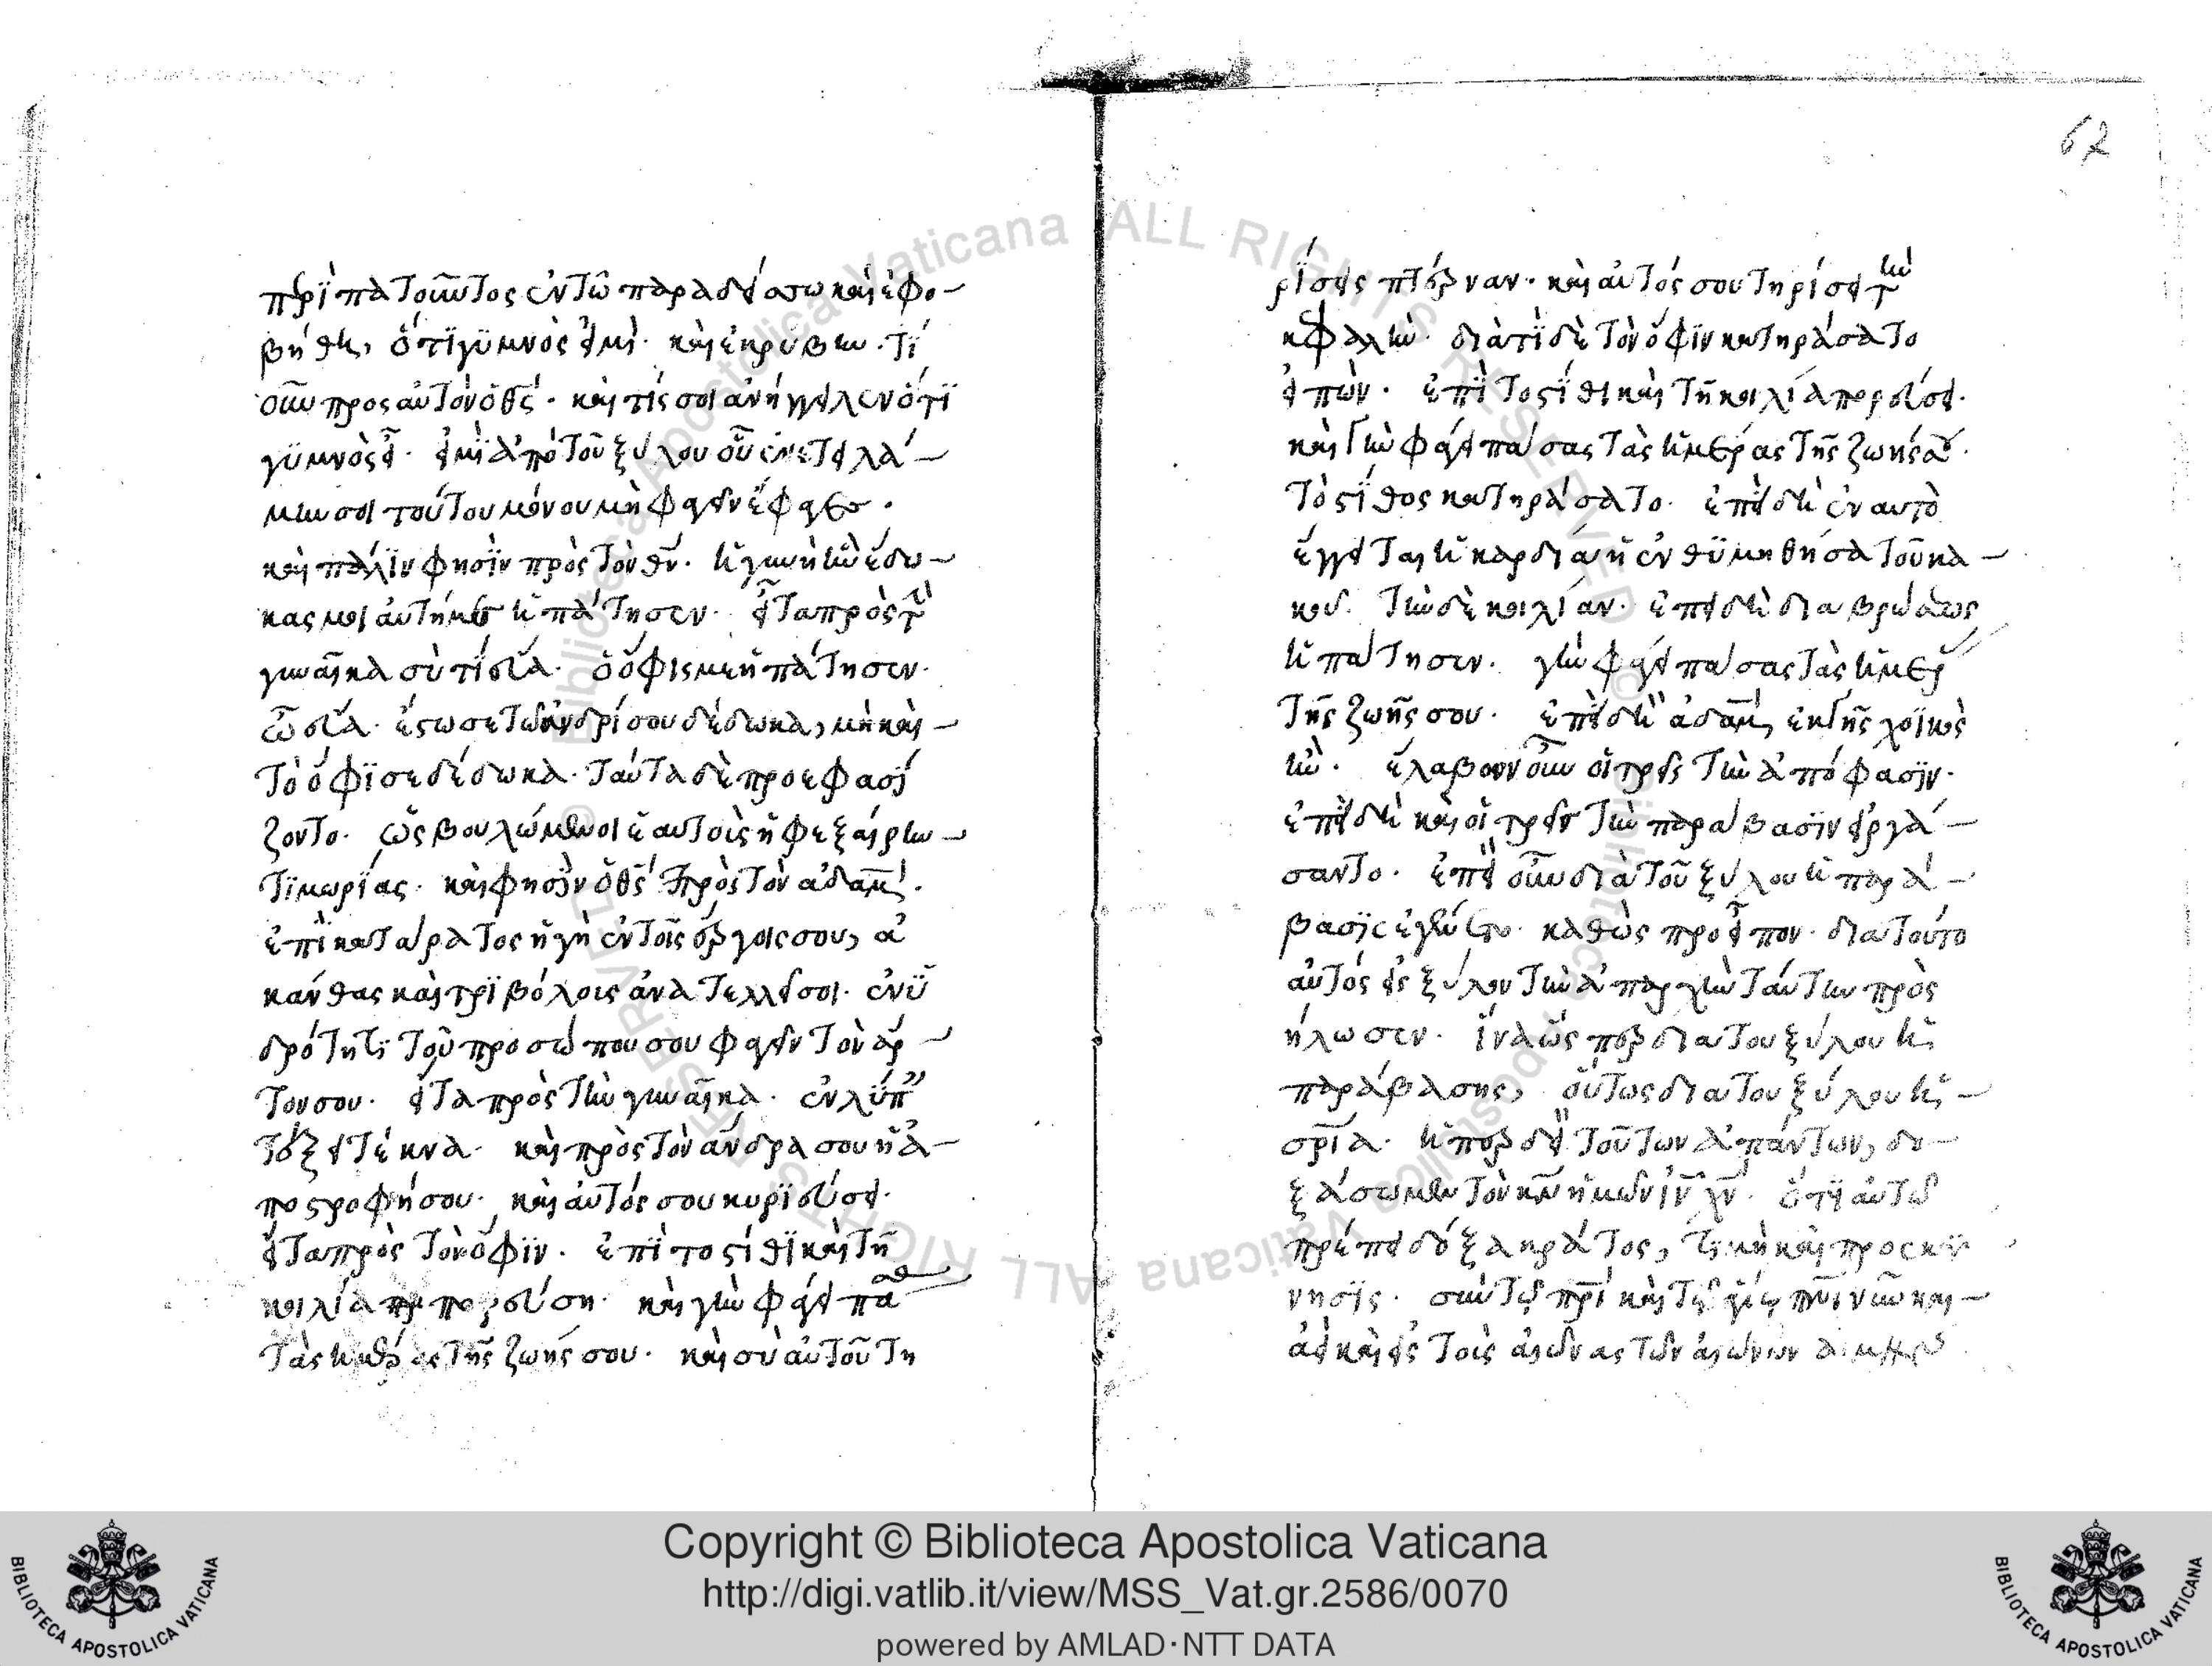 περϊπατοῦντος ἐν τῶ παραδείσω καὶ ἐφο-
βήθην, ὅτϊ γϋμνὸς εἰμὶ· καὶ ἐκρύβην· τΐ
οὖν προς αὐτὸν ὁ θς· καὶ τίς σοι ἀνήγγειλεν ὅτϊ
γϋμνὸς εἶ· εἰ μὴ ἀπὸ τοῦ ξύλου οὗ ἐνετειλά-
μην σοι τούτου μόνου μὴ φαγεῖν ἔφαγες·
καὶ πάλϊν φησϊν πρὸς τὸν θν· ἡ γυνὴ ἣν ἔδω-
κας μοι αὐτή με ἠπάτησεν· εἶτα πρὸς τὴν
γυναῖκα σὺ τΐ εὖα· ὁ ὄφις με ἠπάτησεν·
ὦ εὖα· ἐγώ σε τῶ ἀνδρί σου δέδωκα, μὴ καὶ-
τὸ ὄφϊ σε δέδωκα· ταῦτα δὲ προεφασΐ
ζοντο· ὡς βουλώμενοι ἑαυτοὶς ὑφεξαίρειν
τϊμωρίας· καὶ φησϊν ὁ θς πρὸς τὸν ἀδάμ·
ἐπϊκατάρατος ἡ γῆ ἐν τοῖς ἔργοις σου, ἀ
κάνθας καὶ τρϊβόλοις ἀνατελλεῖ σοι· ἐν ϊ
δρότητϊ τοῦ προσώπου σου φαγεῖν τὸν ἄρ-
τον σου· εἶτα πρὸς τὴν γυναῖκα· ἐν λΰπ
τόξει τέκνα· καὶ πρὸς τὸν ἄνδρα σου ἡ ἀ-
ποστροφή σου· καὶ αὐτός σου κυρϊεύσει·
εἶτα πρὸς τὸν ὄφϊν· ἐπϊ το στήθϊ καὶ τῆ
κοιλία πορεύση· καὶ γῆν φάγει πα
τὰς ἡμέρας τῆς ζωής σου· καὶ σὺ αὐτοῦ τη
ρΐσεις πτέρναν· καὶ αὐτός σου τηρίσει τὴν
κεφαλήν· διὰ τϊ δὲ τὸν ὄφϊν κατηράσατο
εἰπὼν· ἐπϊ το στίθι καὶ τῆ κοιλία πορεύσει·
καὶ γῆν φάγει πάσας τὰς ἡμέρας τῆς ζωής σου·
τὸ στίθος κατηράσατο· ἐπειδὴ ἐν αυτὸ
ἔγγεται ἡ καρδία ἡ ἐνθϋμηθήσα τοῦ κα-
κοῦ· τὴν δὲ κοιλίαν· ἐπειδὴ δια βρώσεως
ἠπάτησεν· γῆν φάγει πάσας τὰς ἡμερ
τῆς ζωῆς σου· ἐπειδὴ ἀδάμ, ἐκ γῆς χοϊκὸς
ἦν· ἔλαβον οὖν οἱ τρεῖς τὴν ἀπόφασϊν·
ἐπειδὴ καὶ οἱ τρεῖς τὴν παράβασϊν εἰργά-
σαντο· ἐπεὶ οὖν διὰ τοῦ ξύλου ἡ παρά-
βασϊς ἐγένετο· καθὼς προεῖπον· δια τοῦτο
αὐτός εἰς ξύλον τὴν ἀπαρχὴν ταύτην πρὸς
ήλωσεν· ἵνα ὥς περ δια του ξύλου ἡ
παράβασης, οὕτως δια του ξύλου ἡ-
σρία· ὑπὲρ δὲ τούτων ἁπάντων, δο-
ξάσωμεν τὸν κν ἡμῶν ιν χν· ὅτϊ αὐτῶ
πρέπει δόξα κράτος, τϊμὴ καὶ προσκϋ
νησϊς· σὺν τῶ πρὶ καὶ τῶ ἁγίω πνϊ νῦν και-
ἀεὶ καὶ εἰς τοὶς αἰῶνας τῶν αἰώνων ἀμήν
62
Copyright © Biblioteca Apostolica Vaticana
http://digi.vatlib.it/view/MSS_Vat.gr.2586/0070
powered by AMLAD·NTT DATA
BIBLIOTECA APOSTOLICA VATICANA
BIBLIOTECA APOSTOLICA VATICANA